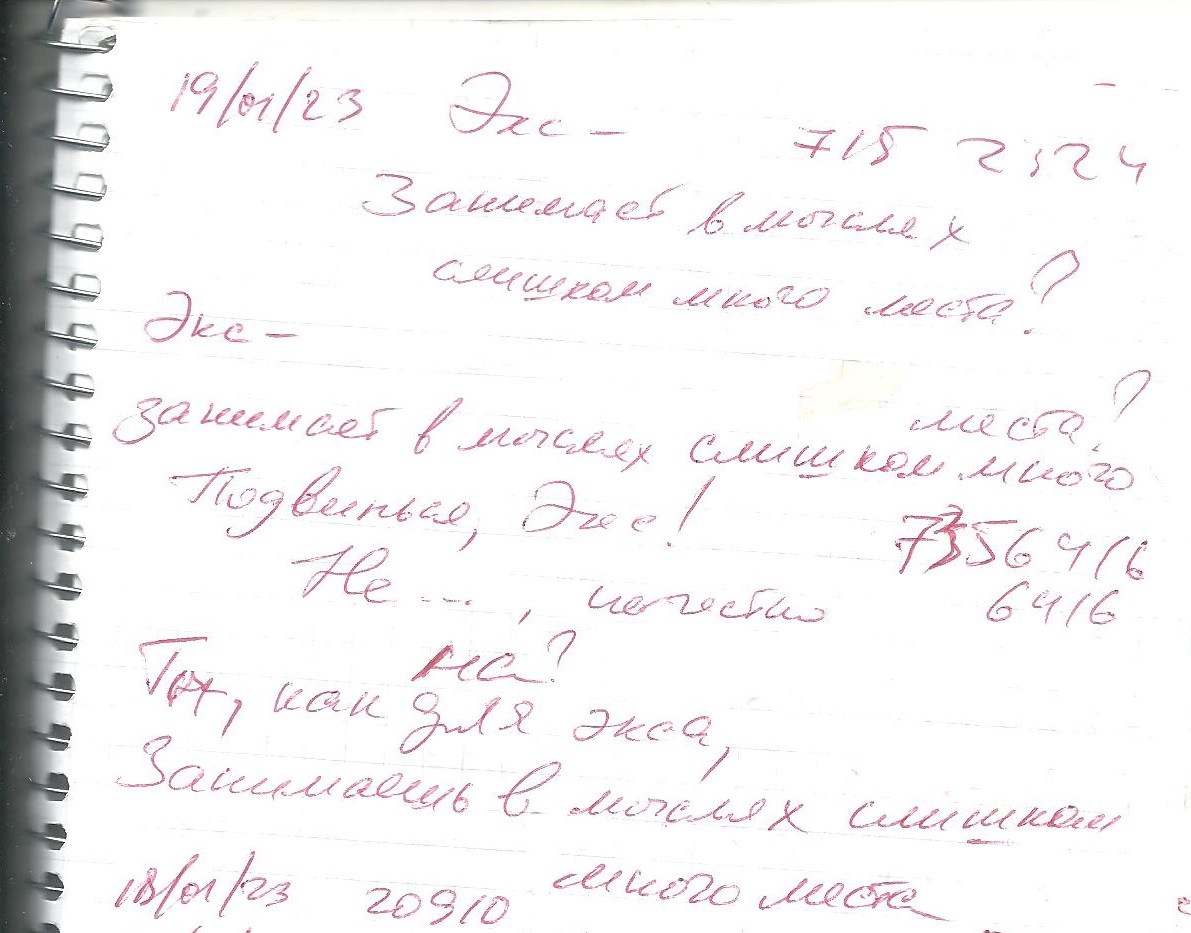 19/01/23 Экс – 715 2,24
Занимает в мыслях
слишком много места?
Экс –
места?
занимает в мыслях слишком много
Подвинься, Экс!
Не ..., нечестно 6416
на?
как для экса,
Занимаешь в мыслях слишком
много места
18/01/23 20910